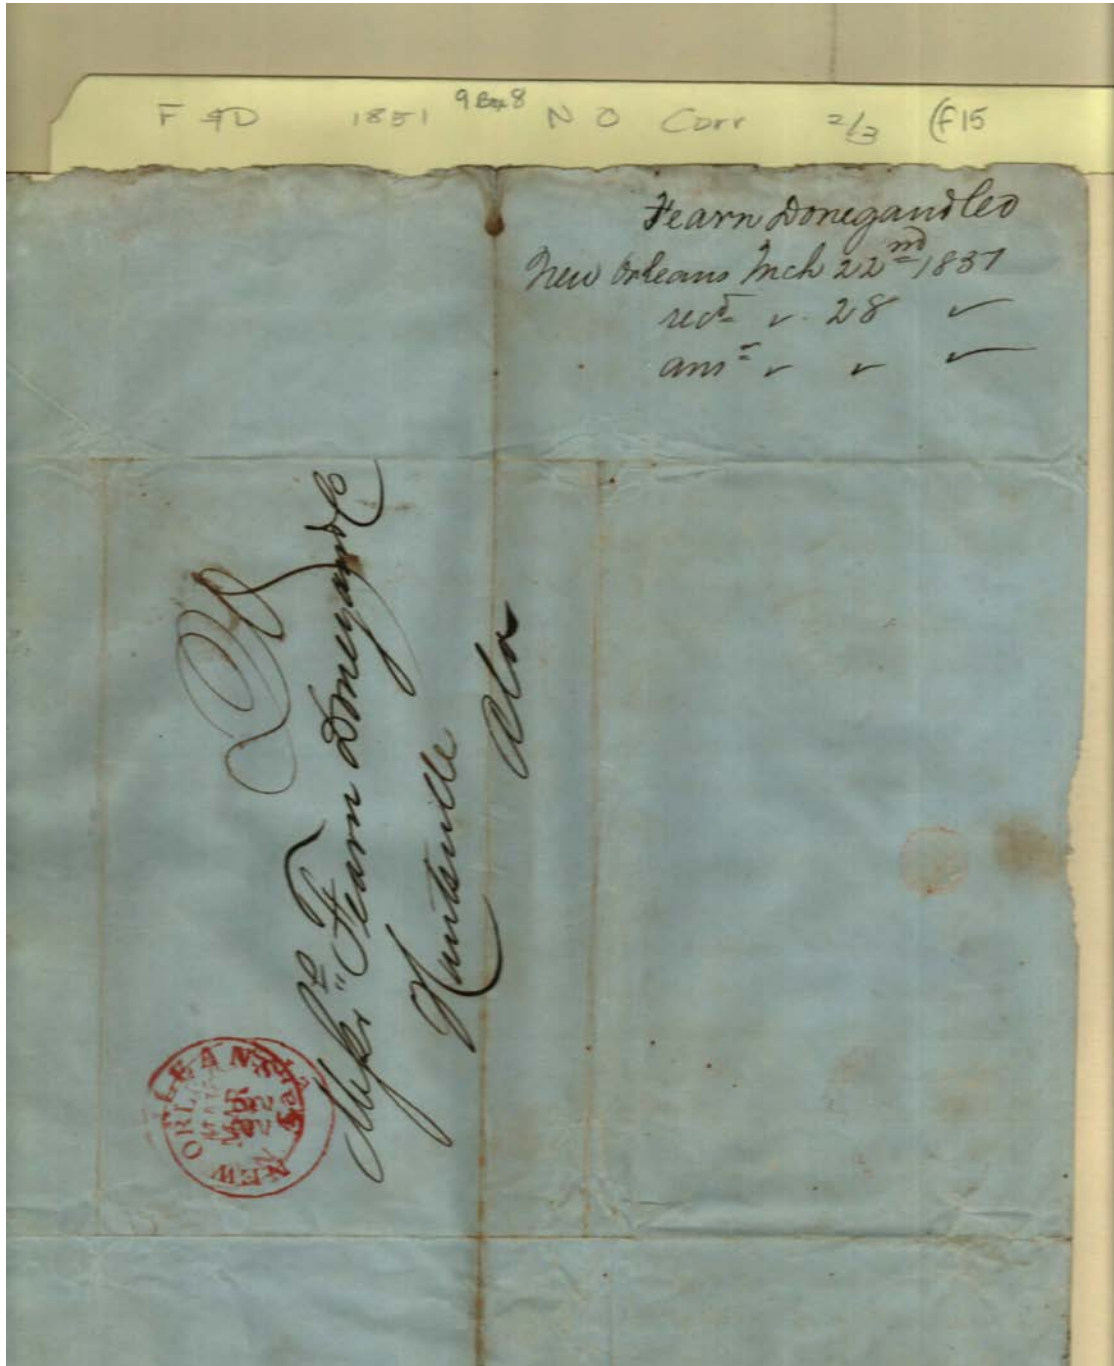 F & D 1851 9 Box 8 N O Corr 2/3 (F15
Fearn Donegan & Co
New Orleans Mch 22nd 1851
recd ✓ 28 ✓
ansd ✓ ✓ ✓
Messrs Fearn Donegan & Co
Huntsville
Ala
NEW ORLEANS La
MAR
22